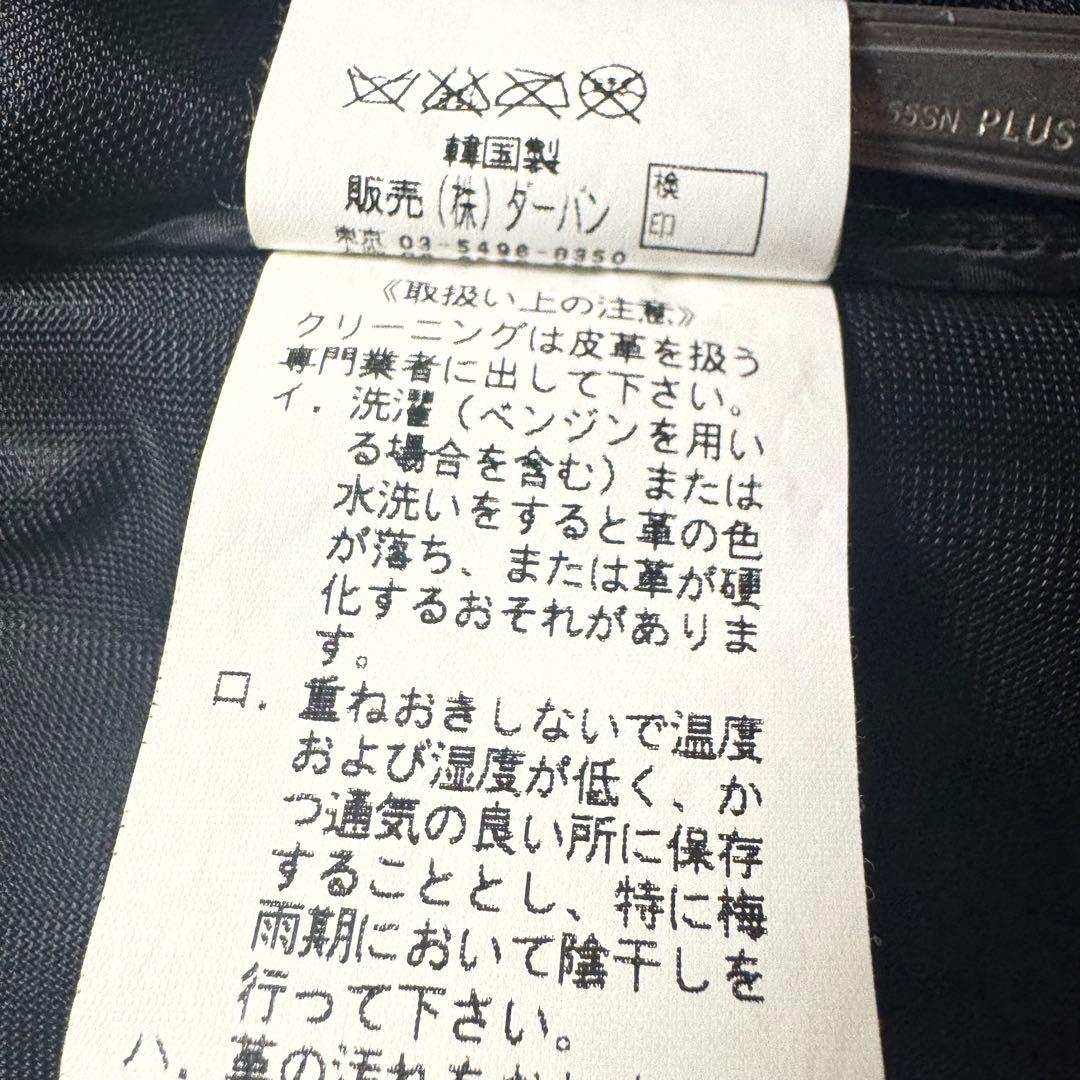 韓国製
販売(株)ダーバン
検
印
東京 03-5496-0350
SSSN PLUS
《取扱い上の注意》
クリーニングは皮革を扱う
専門業者に出して下さい。
イ.洗濯(ベンジンを用い
る場合を含む)または
水洗いをすると革の色
が落ち、または革が硬
化するおそれがありま
す。
ロ.重ねおきしないで温度
および湿度が低く、か
つ通気の良い所に保存
することとし、特に梅
雨期において陰干しを
行って下さい。
ハ.革の汚れを